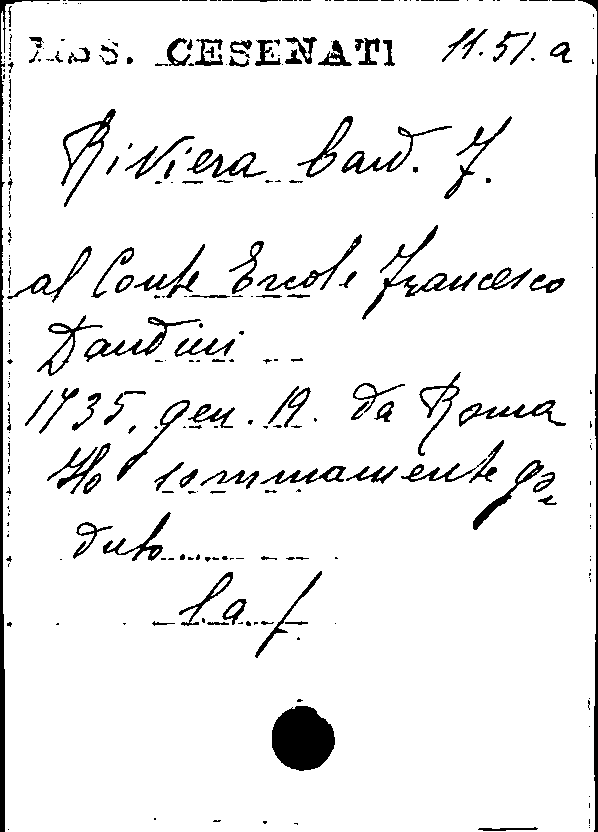 MSS. CESENATI 11.51.a
Riviera Card. J.
al Conte Ercole Francesco
Dandini
1735, gen. 19. da Roma
Ho sommamente go=
duto.....
l.a.f